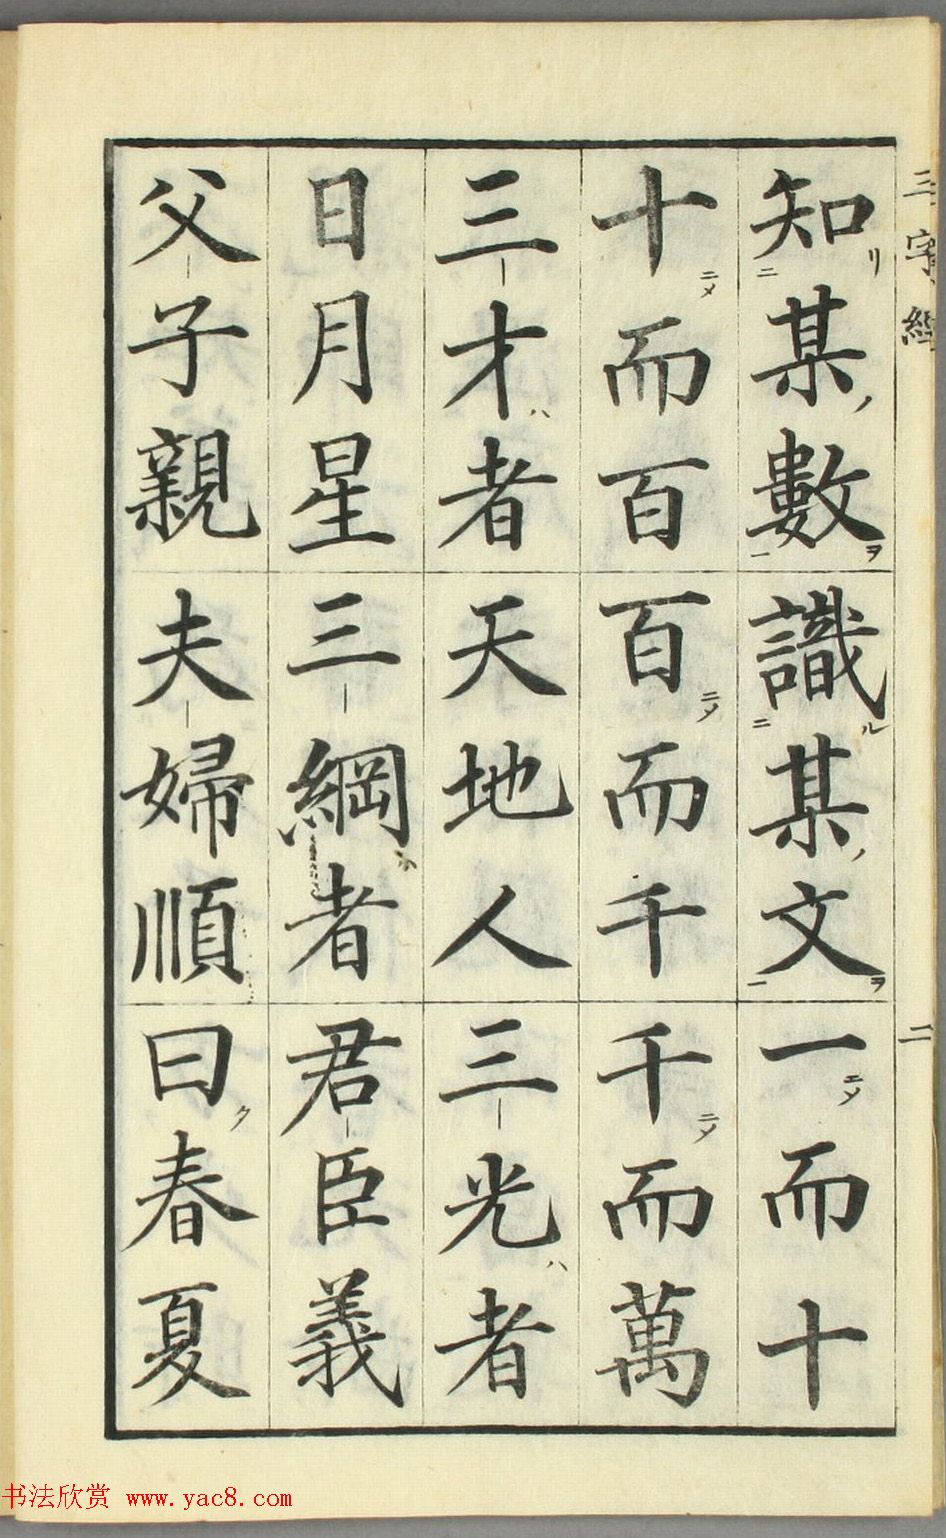 三字經
二
知某數識某文一而十
十而百百而千千而萬
三才者天地人三光者
日月星三綱者君臣義
父子親夫婦順曰春夏
书法欣赏 www.yac8.com